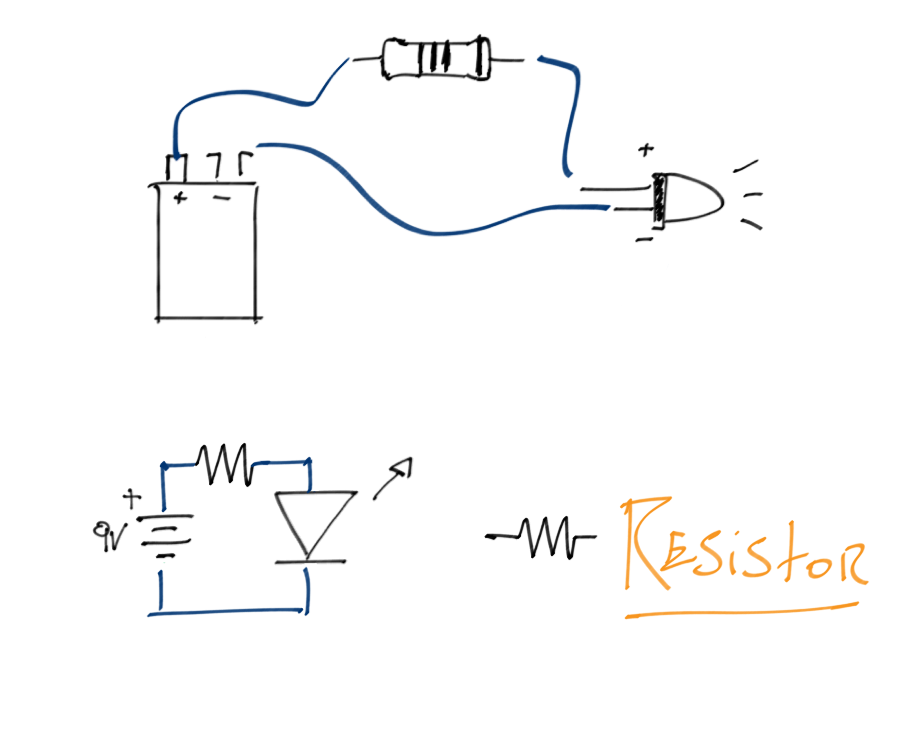 +
+ −
−
+
9V
RESistOR